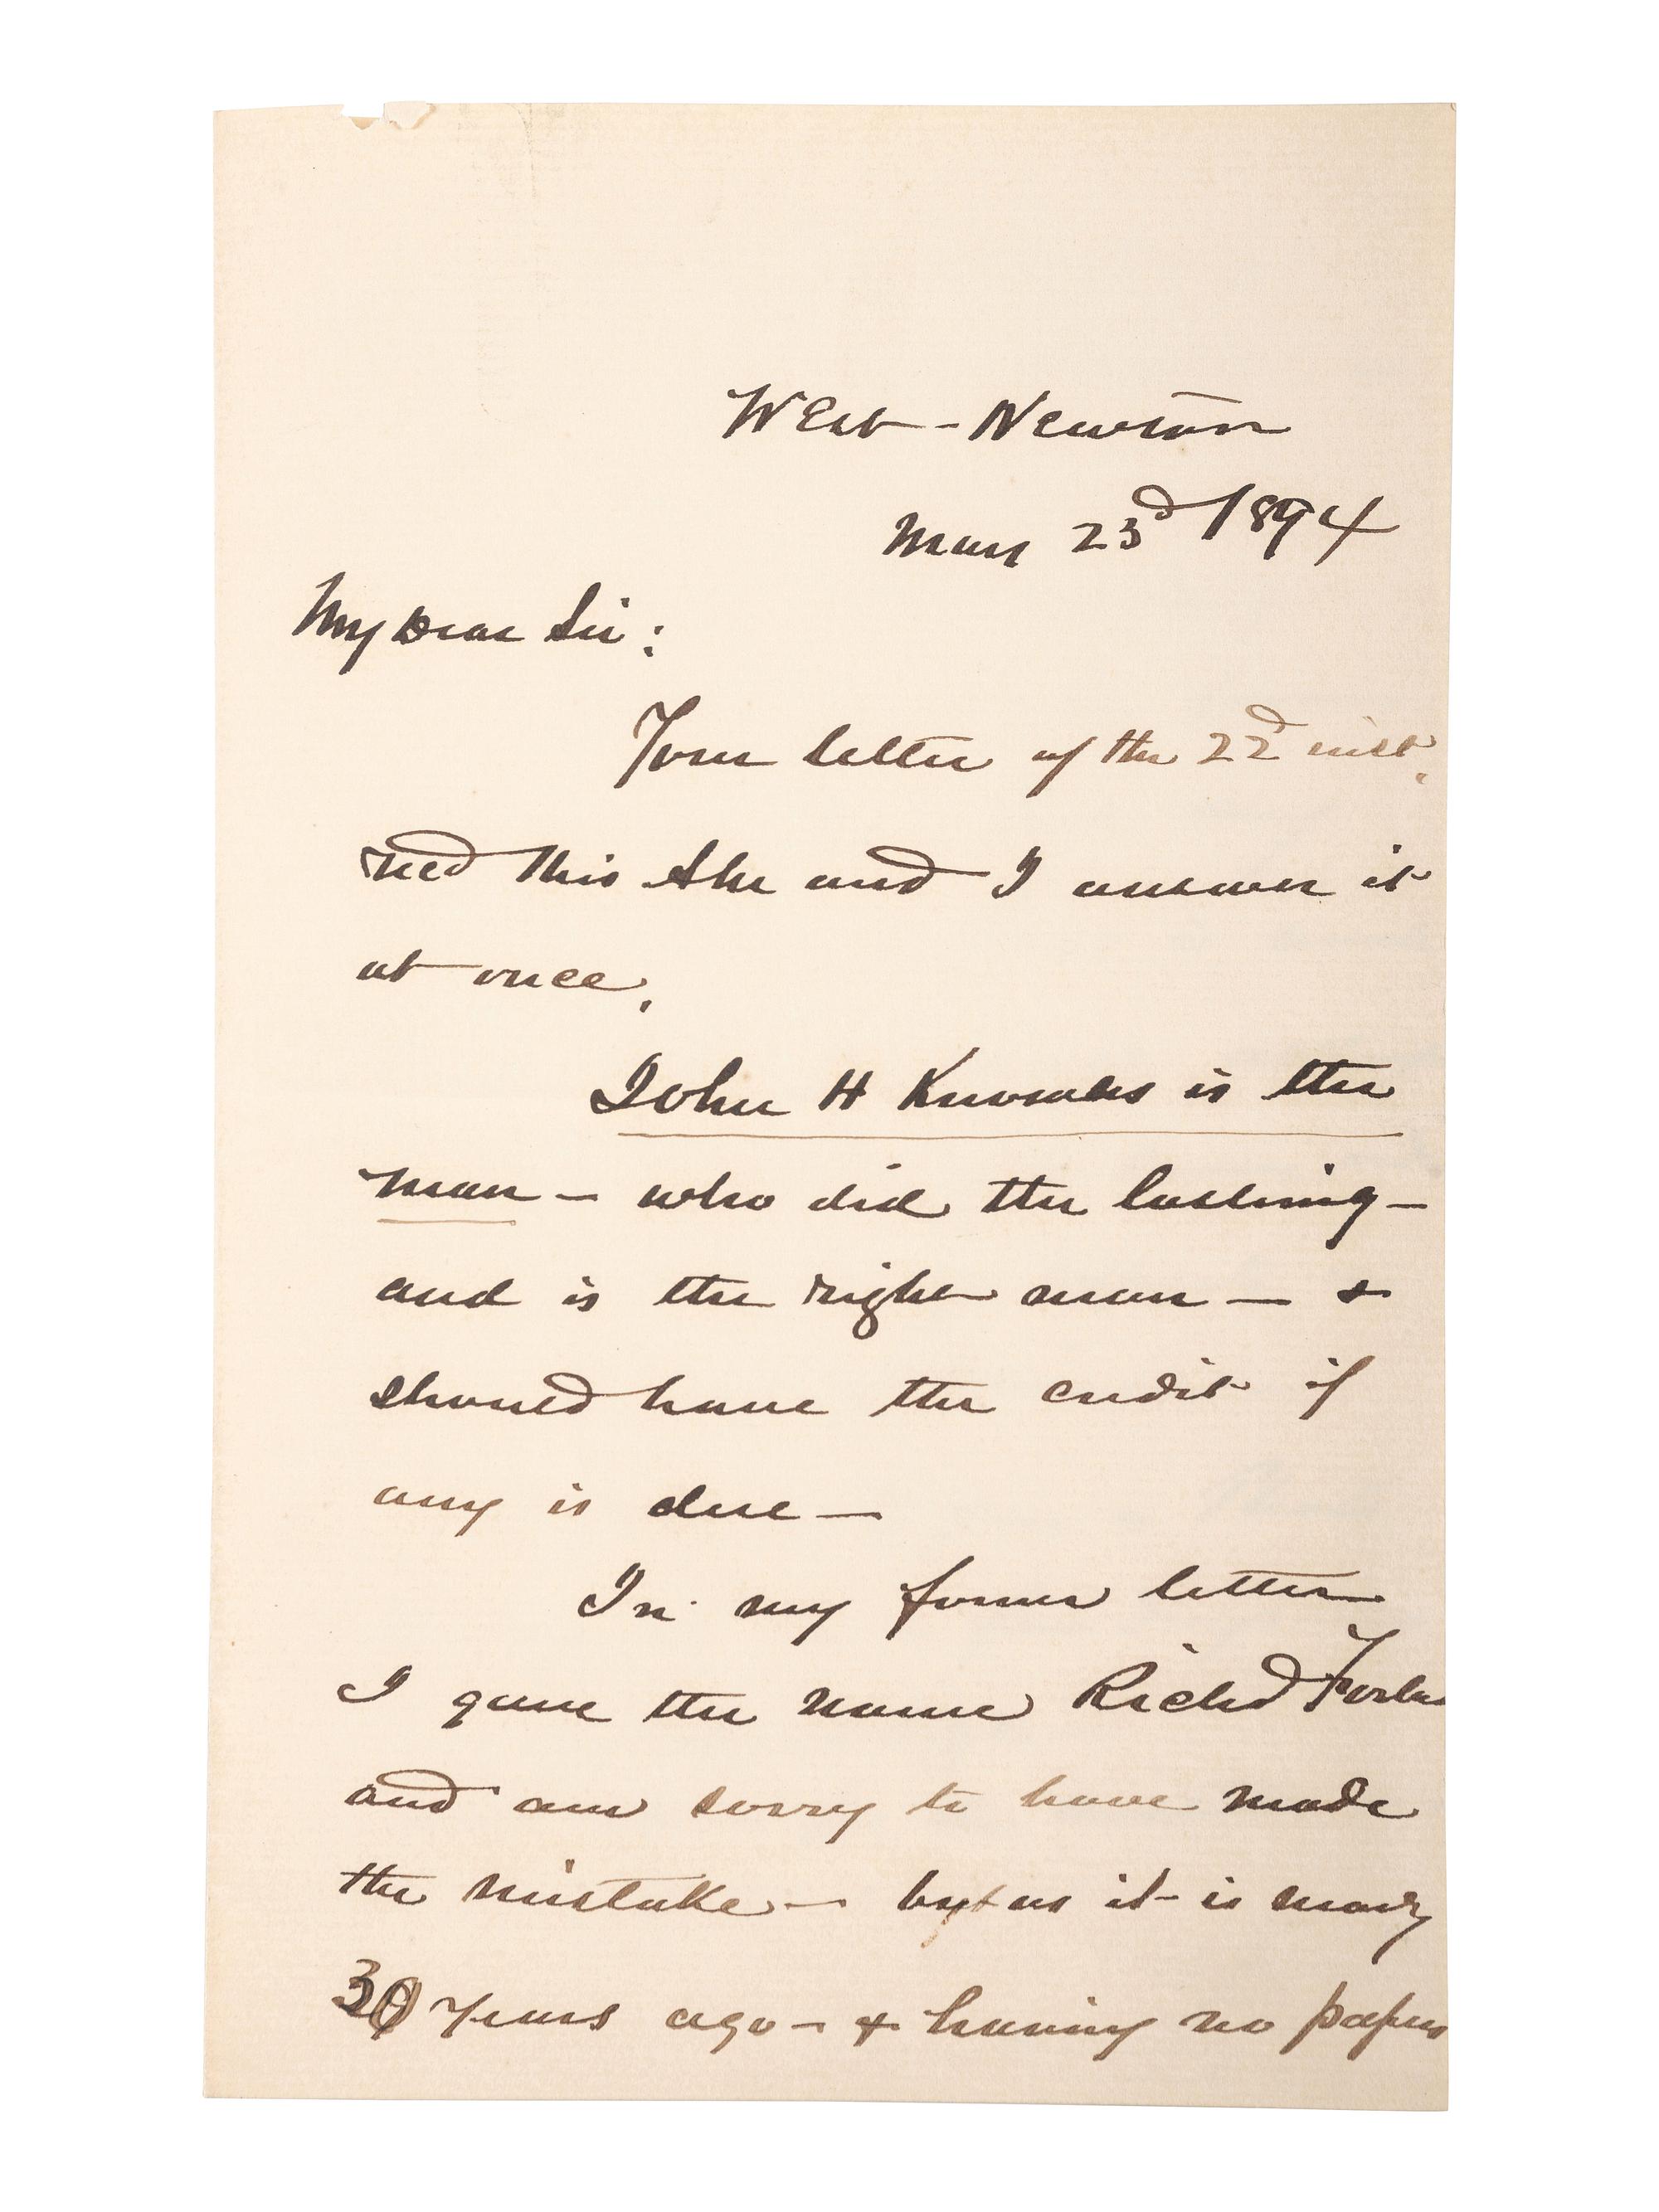 West-Newton
May 23d 1894
My Dear Sir:
Your letter of the 22d inst.
recd this and I answer it
at once.
John H Knowles is the
man - who did the lashing -
and is the right man - &
should have the credit if
any is due -
In my former letter
I gave the name Richd
and am sorry to have made
the mistake - but as it is
30 years ago - & having no papers